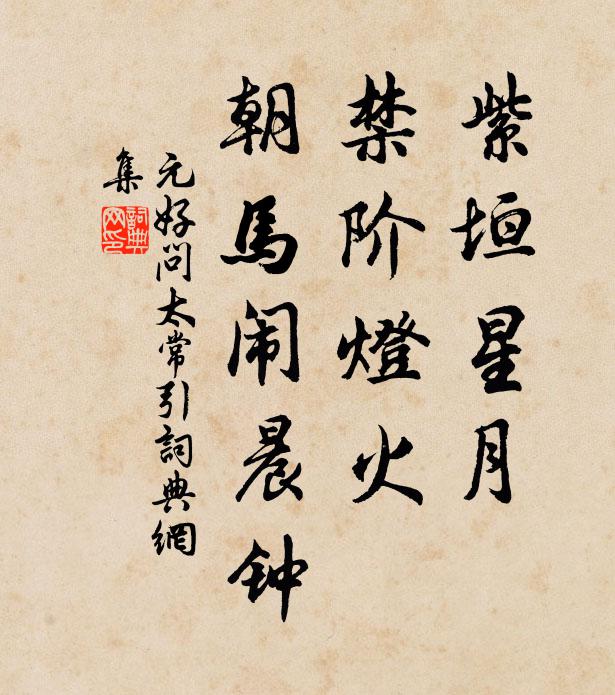 紫垣星月
禁阶燈火
朝馬闹晨钟
元好问太常引詞典網
集
詞典网印